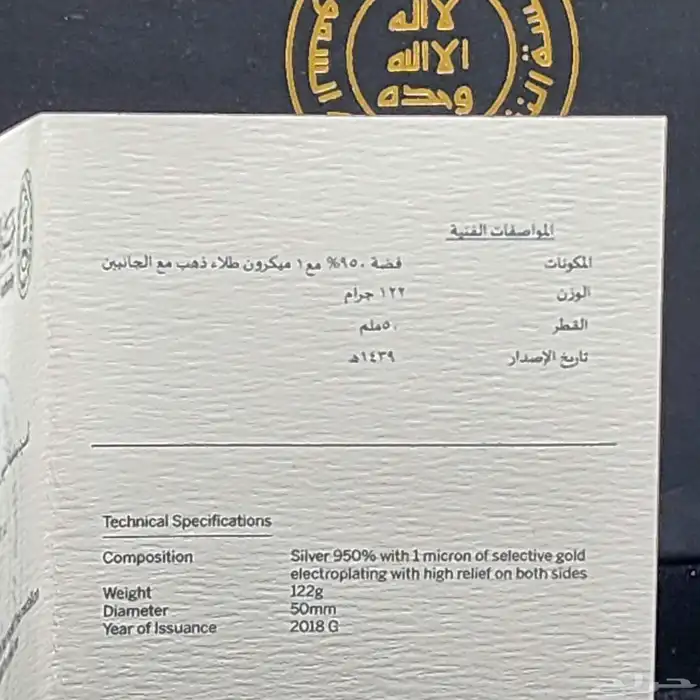 لا اله
الا الله
وحده
المواصفات الفنية
المكونات فضة ٩٥٠% مع ١ ميكرون طلاء ذهب مع الجانبين
الوزن ١٢٢ جرام
القطر ٥٠ملم
تاريخ الإصدار ١٤٣٩هـ
Technical Specifications
Composition Silver 950% with 1 micron of selective gold
electroplating with high relief on both sides
Weight 122g
Diameter 50mm
Year of Issuance 2018 G
حراج